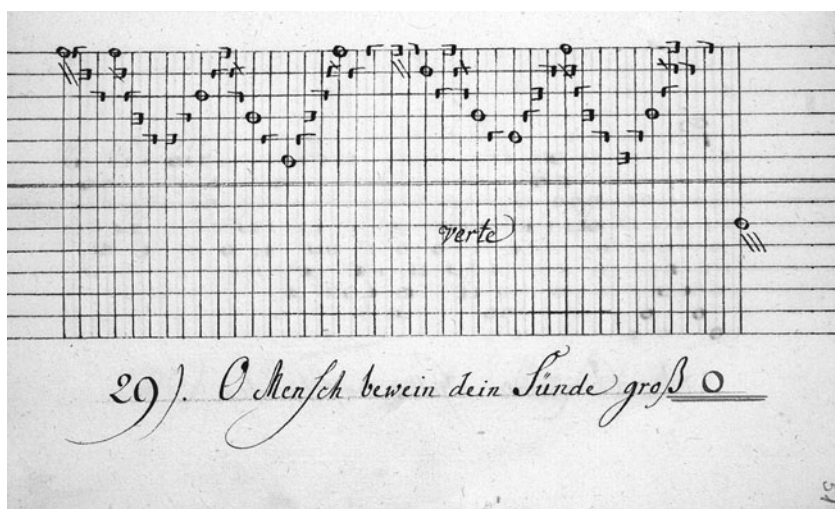 verte
29). O Mensch bewein dein Sünde groß O